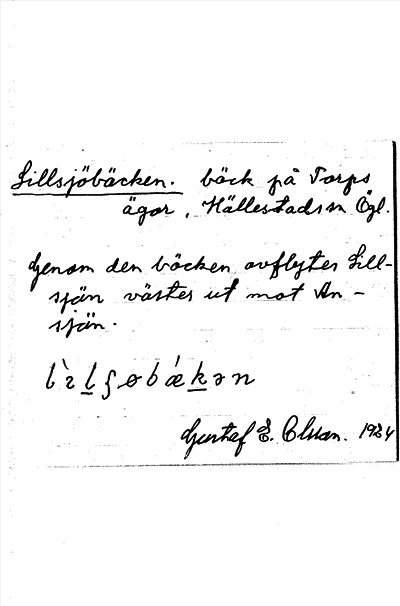 Lillsjöbäcken. bäck på Torps
ägor, Hällestads sn Ögl.
Genom den bäcken avflyter Lill-
sjön väster ut mot An-
sjön.
Gustaf E. Olsson. 1934